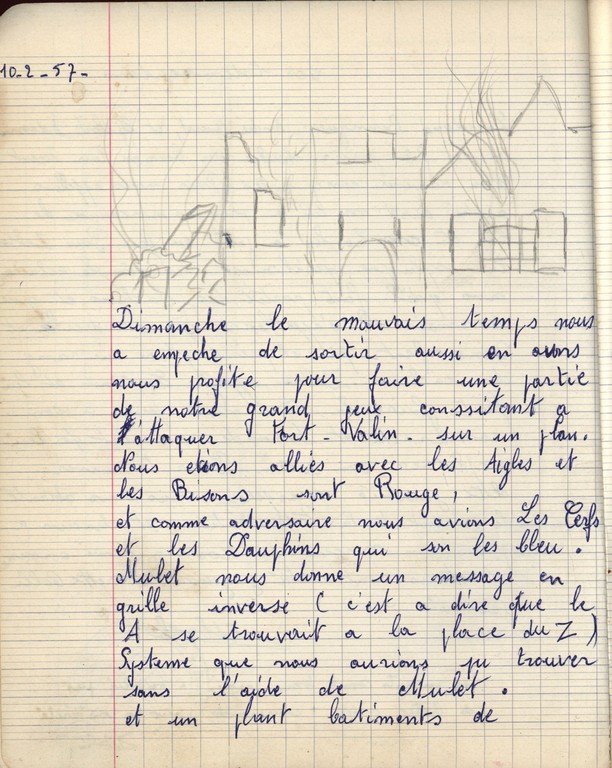 10-2-57-
Dimanche le mauvais temps nous
a empeche de sortir aussi en avons
nous profite pour faire une partie
de notre grand jeux conssitant a
l'attaquer Fort-Valin. sur un plan.
Nous etions alliés avec les Aigles et
les Bisons sont Rouge,
et comme adversaire nous avions Les Cerfs
et les Dauphins qui son les bleu.
Mulet nous donne un message en
grille inverse ( c'est a dire que le
A se trouvait a la place du Z )
Systeme que nous aurions pu trouver
sans l'aide de Mulet.
et un plant batiments de